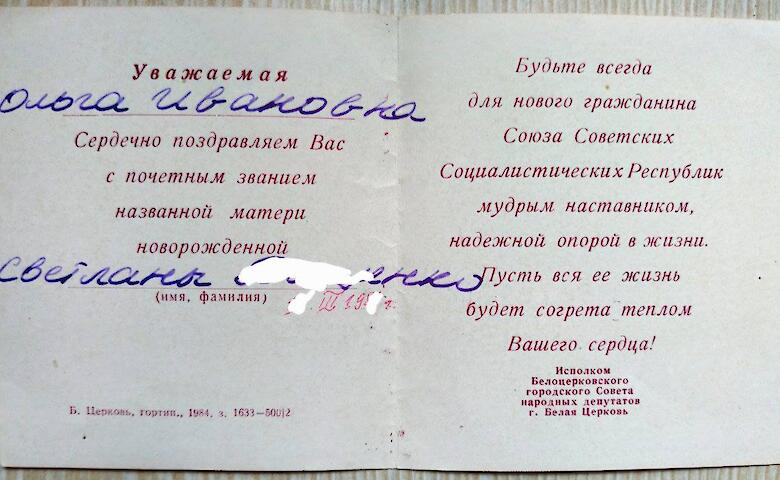 Уважаемая
Ольга Ивановна
Сердечно поздравляем Вас
с почетным званием
названной матери
новорожденной
Светланы
(имя, фамилия)
Б. Церковь, гортип., 1984, з. 1633—500|2
Будьте всегда
для нового гражданина
Союза Советских
Социалистических Республик
мудрым наставником,
надежной опорой в жизни.
Пусть вся ее жизнь
будет согрета теплом
Вашего сердца!
Исполком
Белоцерковского
городского Совета
народных депутатов
г. Белая Церковь